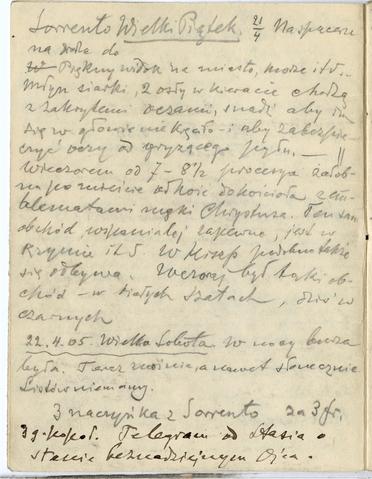 Sorrento Wielki Piątek. 21/4 Na spacerze
na dole do
Piękny widok na miasto, morze itd.
Młyn siarki, 2 osły w kieracie chodzą
z zakrytemi oczami, snadź aby im
się w głowie nie kręciło i aby zabezpie
czyć oczy od gryzącego pyłu. —
Wieczorem od 7 – 8½ procesya żałob
na po mieście od kościoła do kościoła z em
blematami męki Chrystusa. Ten sam
obchód wspanialej zapewne, jest w
Rzymie itd. W Hiszp. podobno także
się odbywa. Wczoraj był taki ob
chód – w białych szatach, dziś w
czarnych
22.4.05. Wielka Sobota. W nocy burza
była. Teraz zimniej, a nawet słonecznie
Listów nie mamy.
3 naczyńka z Sorrento za 3 fr.
3 g. popoł. Telegram od Stasia o
stanie beznadziejnym Ojca.